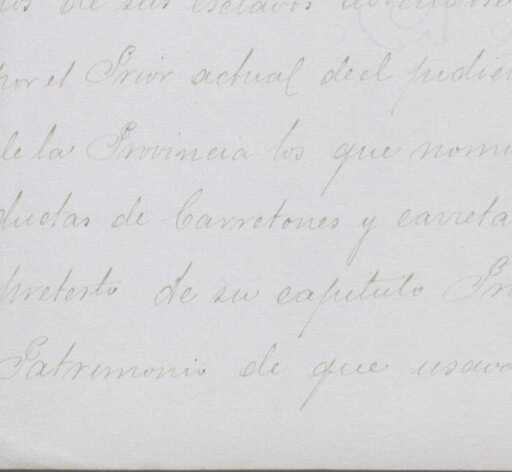 de sus esclavos
por el Prior actual del pedien
de la Provincia los que nomi
ductas de Carretones y carreta
pretesto de su capitulo Pro
Patrimonio de que usava